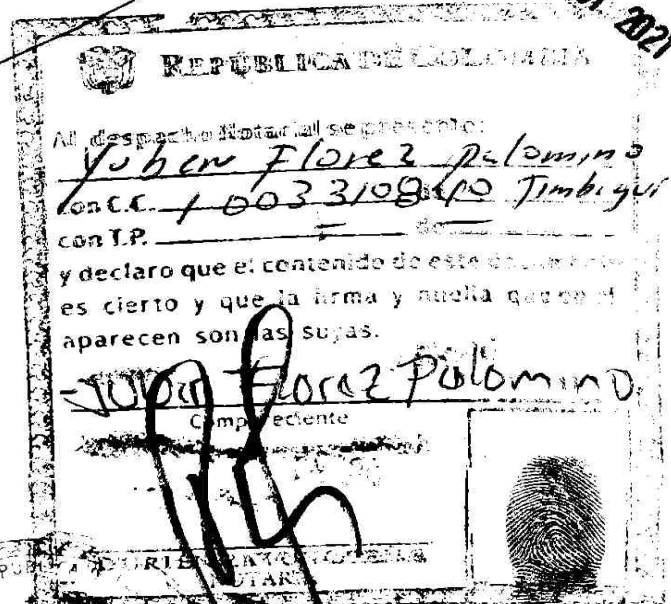 2021
REPÚBLICA DE COLOMBIA
Al despacho Notarial se presentó:
Yuben Florez Palomino
con C.C. 1003310840 Timbiquí
con T.P. de
y declaro que el contenido de este documento
es cierto y que la firma y huella que en el
aparecen son las suyas.
Yuben Florez Palomino
Compareciente